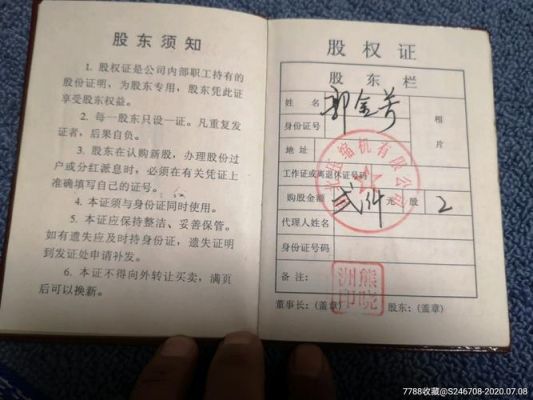 股东须知
1. 股权证是公司内部职工持有的
股份证明，为股东专用，股东凭此证
享受股东权益。
2. 每一股东只设一证。凡重复发
证者，后果自负。
3. 股东在认购新股，办理股份过
户或分红派息时，必须在有关凭证上
准确填写自己的证号。
4. 本证须与身份证同时使用。
5. 本证应保持整洁、妥善保管。
如有遗失应及时持身份证，遗失证明
到发证处申请补发。
6. 本证不得向外转让买卖，满页
后可以换新。
股权证
股东栏
姓名 郭金芳
相片
身份证号
地址
工作证或离退休证号码
购股金额 贰仟 元 股 2
代理人姓名
身份证号码
备注：
董事长：(盖章)
股东：(盖章)
缩机有限公司
熊晓洲印
7788收藏@S246708-2020.07.08